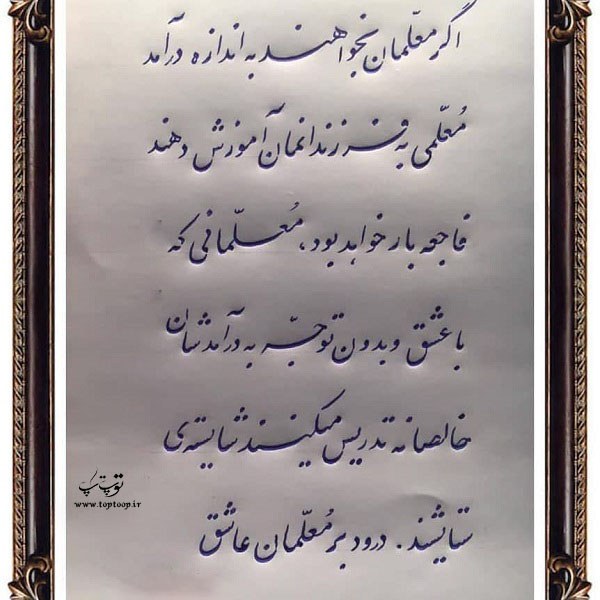 اگر معلّمان بخواهند به اندازه درآمد
مُعلّمی به فرزندانمان آموزش دهند
فاجعه بار خواهد بود، مُعلّمانی که
با عشق و بدون توجّه به درآمدشان
خالصانه تدریس میکنند شایسته‌ی
ستایشند . درود بر مُعلّمان عاشق
توپ تُپ
www.toptoop.ir